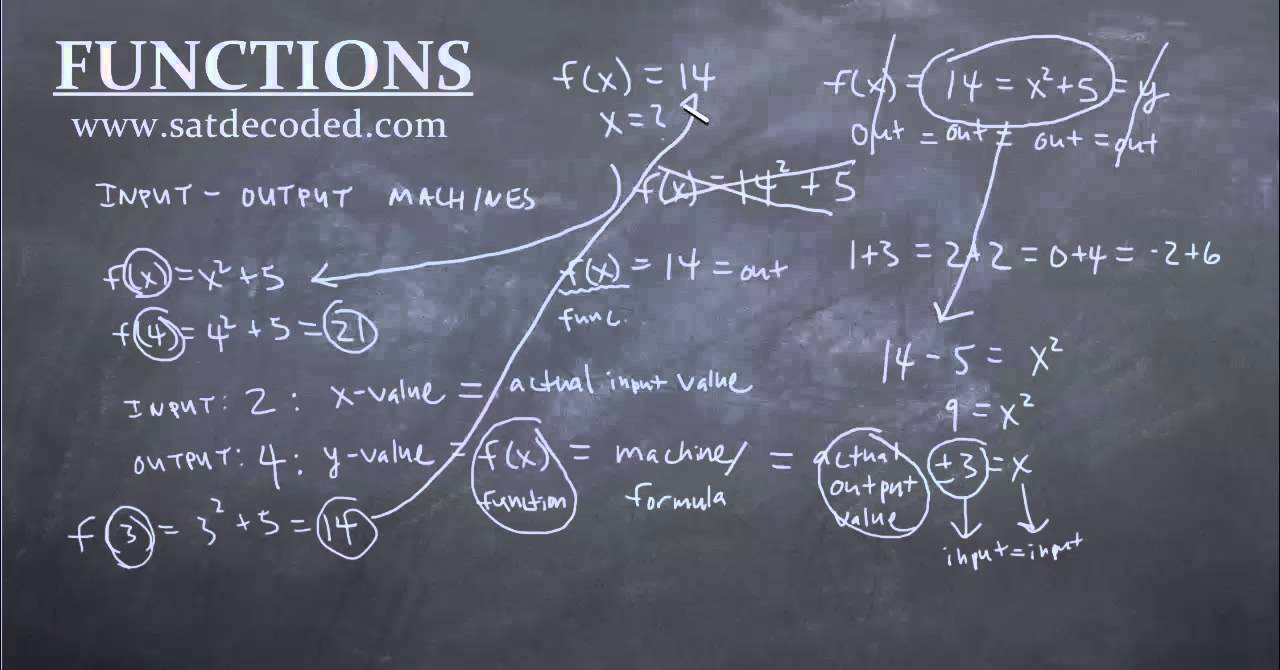 FUNCTIONS
www.satdecoded.com
INPUT - OUTPUT MACHINES
f(x) = x² + 5
f(4) = 4² + 5 = 21
INPUT: 2 : x-value = actual input value
OUTPUT: 4 : y-value = f(x) function = machine/formula = actual output value
f(3) = 3² + 5 = 14
f(x) = 14
x = ?
f(x) = 14² + 5
f(x) = 14 = out
func.
f(x) = 14 = x² + 5 = y
out = out = out = out
1+3 = 2+2 = 0+4 = -2+6
14 - 5 = x²
9 = x²
±3 = x
input = input